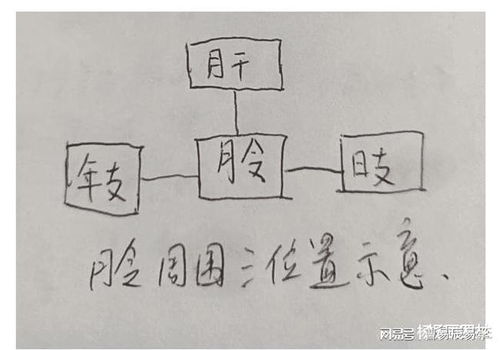 月干
年支 月令 日支
月令周围三位置示意、
搜狐号